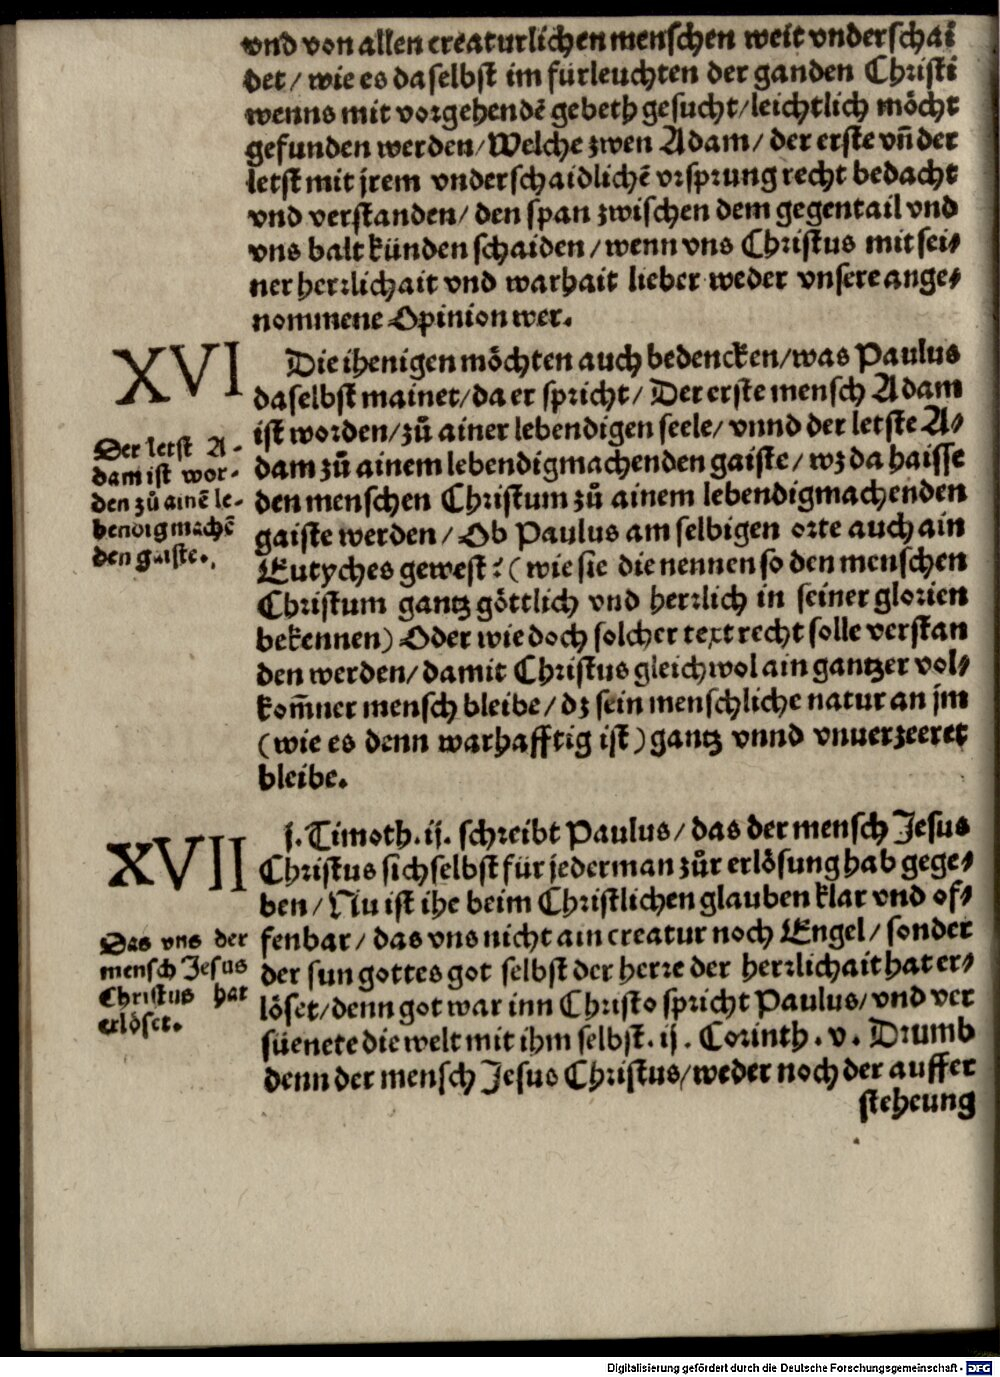 vnd von allen creaturlichen menschen weit vnderschai
det/ wie es daselbst im fürleuchten der ganden Christi
wenns mit vorgehendē gebeth gesucht/leichtlich möcht
gefunden werden/Welche zwen Adam/ der erste vn̄ der
letst mit jrem vnderschaidlichē vrsprung recht bedacht
vnd verstanden/ den span zwischen dem gegentail vnd
vns balt künden schaiden/wenn vns Christus mit sei/
ner herrlichait vnd warhait lieber weder vnsere ange/
nommene Opinion wer.
XVI
Die ihenigen möchten auch bedencken/was Paulus
daselbst mainet/da er spricht/ Der erste mensch Adam
ist worden/zů ainer lebendigen seele/ vnnd der letste A/
dam zů ainem lebendigmachenden gaiste/ wz da haisse
den menschen Christum zů ainem lebendigmachenden
gaiste werden/ Ob Paulus am selbigen orte auch ain
Eutyches gewest? (wie sie die nennen so den menschen
Christum gantz göttlich vnd herrlich in seiner glorien
bekennen) Oder wie doch solcher text recht solle verstan
den werden/damit Christus gleichwol ain gantzer vol/
kom̄ner mensch bleibe/ dz sein menschliche natur an jm
(wie es denn warhafftig ist) gantz vnnd vnuerzeeret
bleibe.
Der letst A-
dam ist wor-
den zů ainē le-
bendigmachē
den gaiste.
XVII
j. Timoth. ij. schreibt Paulus/ das der mensch Jesus
Christus sich selbst für jederman zůr erlösung hab gege/
ben/ Nu ist ihe beim Christlichen glauben klar vnd of/
fenbar/ das vns nicht ain creatur noch Engel/ sonder
der sun gottes got selbst der herre der herrlichait hat er/
löset/denn got war inn Christo spricht Paulus/vnd ver
süenete die welt mit ihm selbst. ij. Corinth. v. Drumb
denn der mensch Jesus Christus/weder noch der auffer
steheung
Das vns der
mensch Jesus
Christus hat
erlöset.
Digitalisierung gefördert durch die Deutsche Forschungsgemeinschaft - DFG